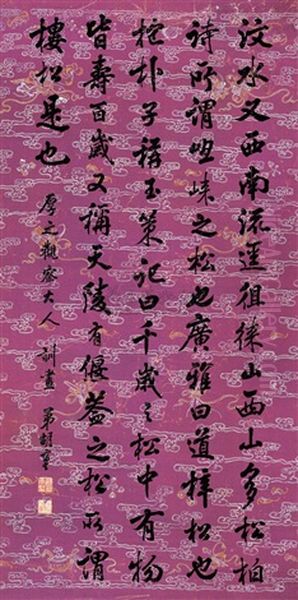 汶水又西南流逕徂徠山西山多松柏
詩所謂徂崍之松也廣雅曰道梓松也
抱朴子稱玉策記曰千歲之松中有物
皆壽百歲又稱天陵有偃蓋之松所謂
樓松是也
厚之觀察大人
訓畫 弟胡